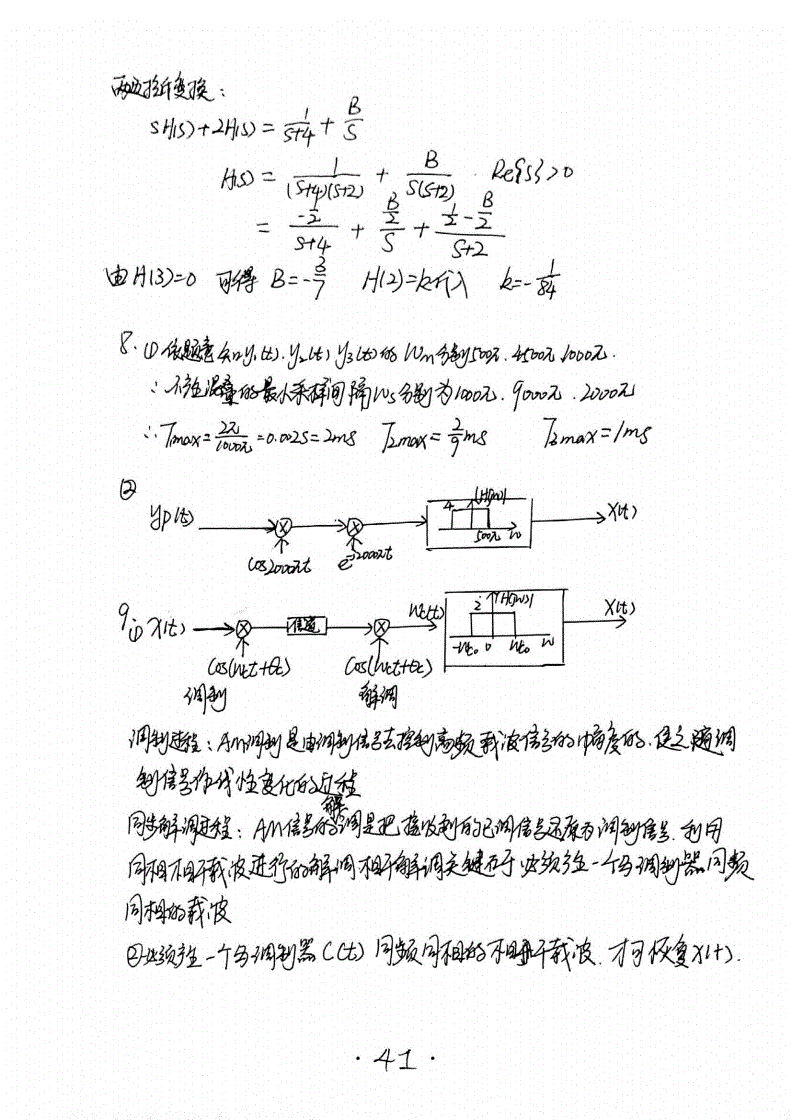 两边拉斤变换：
SH(s)+2H(s) = 1/(S+4) + B/S
H(s) = 1/((S+4)(S+2)) + B/(S(S+2)) . Re{s}>0
= (-1/2)/(S+4) + (B/2)/S + (1/2 - B/2)/(S+2)
由 H(3)=0 可得 B=-3/7 H(2)=k代入 k=-1/84
8. ① 依题意知 y₁(t). y₂(t) y₃(t) 的 Wm 分别 500π. 4500π. 1000π.
∴ 不产生混叠的最小采样间隔 Ws 分别为 1000π. 9000π. 2000π
∴ T₁max = 2π/1000π = 0.002S = 2ms T₂max = 2/9 ms T₃max = 1ms
②
yp(t) X X 4 |H(jw)| 500π w X(t)
cos2000πt e^j2000πt
9. ① X(t) X 信道 X Wt(t) 2 |H(jw)| -Wto 0 Wto W X(t)
Cos(Wct+θc) Cos(Wct+θc)
调制 解调
调制过程：AM调制是由调制信号去控制高频载波信号的幅度的.使之随调
制信号作线性变化的过程
同步解调过程：AM信号的解调是把接收到的已调信号还原为调制信号.利用
同相相干载波进行的解调 相干解调关键在于必须产生一个与调制器同频
同相的载波
②必须产生一个与调制器C(t)同频同相的相干载波.才可恢复X(t).
· 41 ·